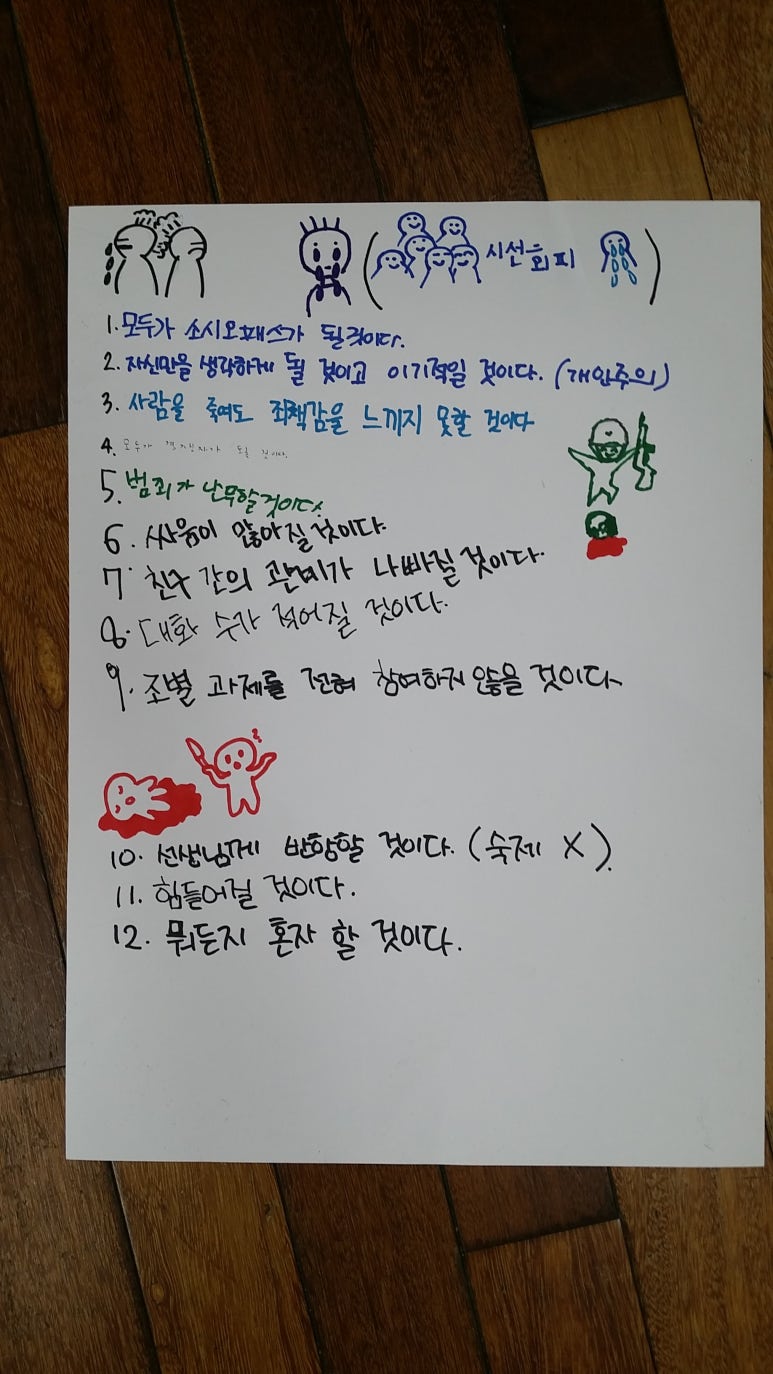 시선회피
1. 모두가 소시오패스가 될것이다.
2. 자신만을 생각하게 될 것이고 이기적일 것이다. (개인주의)
3. 사람을 죽여도 죄책감을 느끼지 못할 것이다
4. 모두가 될 것이다.
5. 범죄가 난무할것이다.
6. 싸움이 많아질것이다.
7. 친구 간의 관계가 나빠질 것이다.
8. 대화 수가 적어질 것이다.
9. 조별 과제를 전혀 참여하지 않을 것이다
10. 선생님께 반항할 것이다. (숙제 X).
11. 힘들어질 것이다.
12. 뭐든지 혼자 할 것이다.